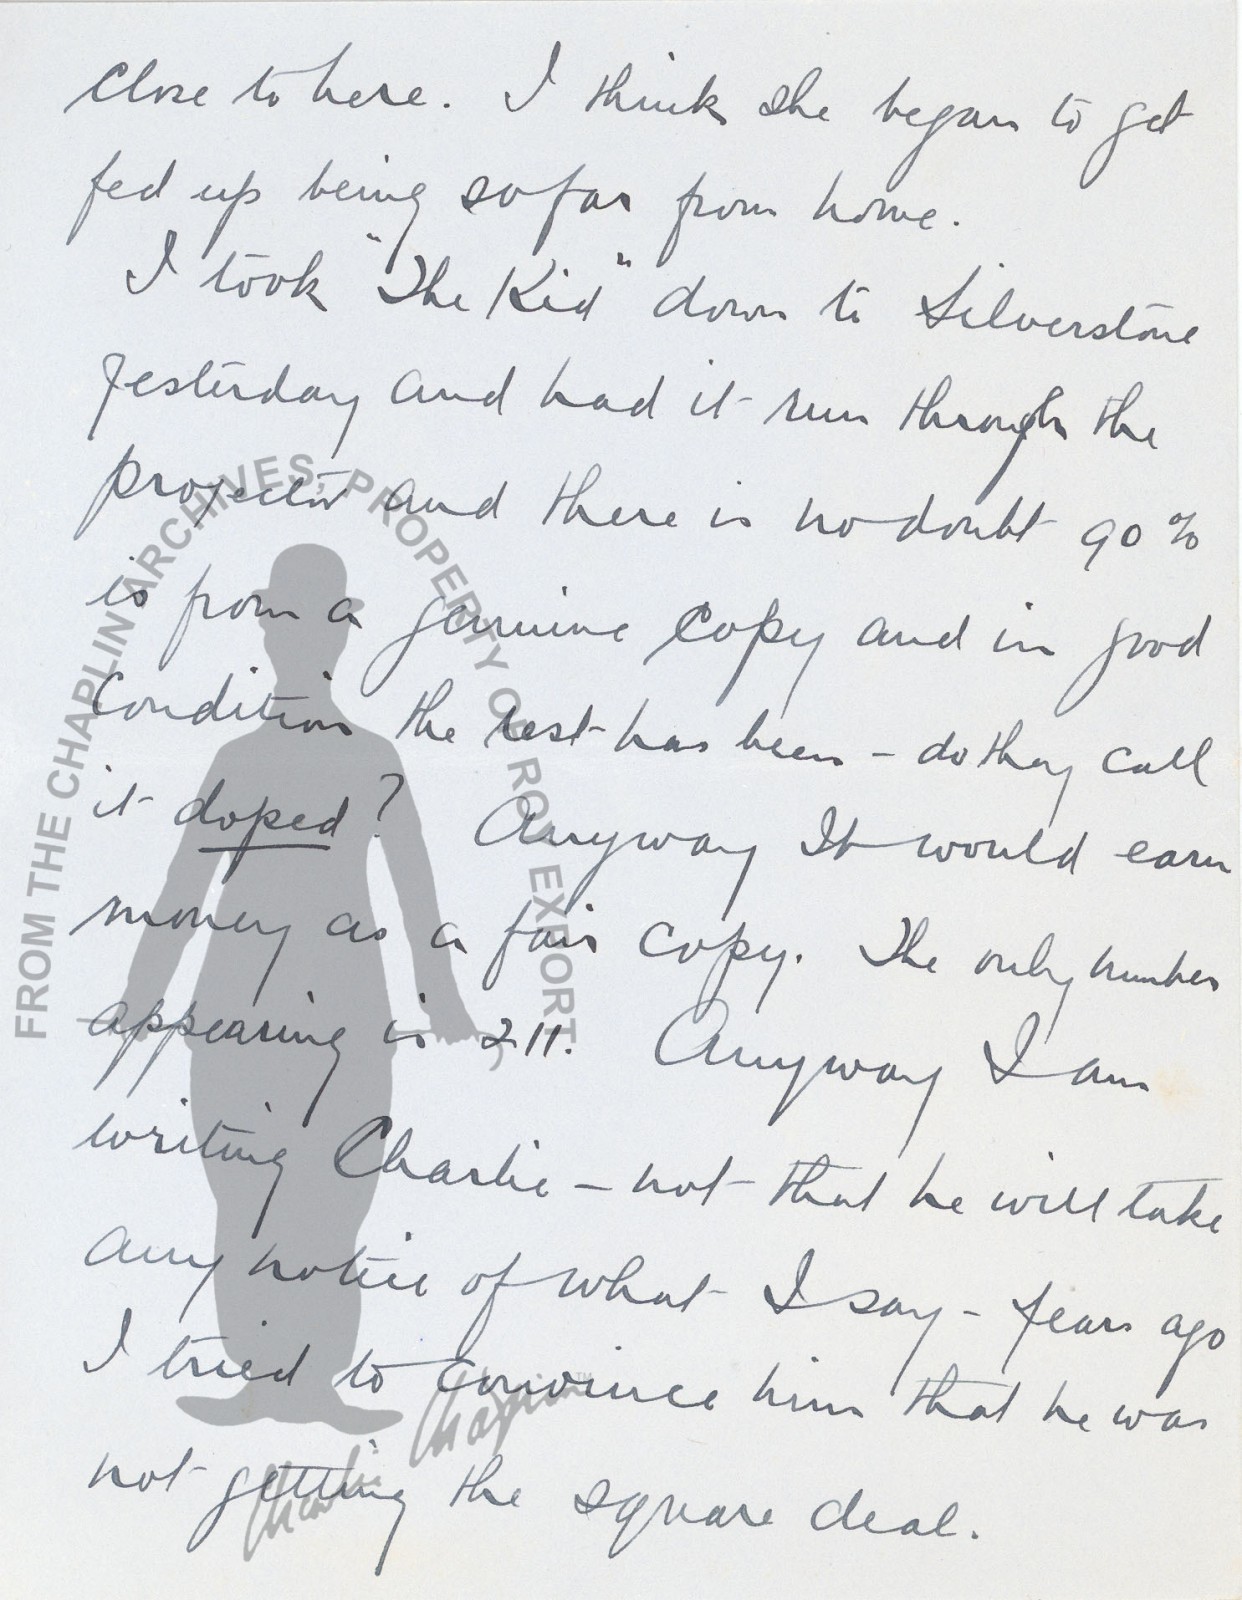 close to here. I think she began to get
fed up being so far from home.
I took "The Kid" down to Silverstone
yesterday and had it run through the
projector and there is no doubt 90%
is from a genuine copy and in good
condition the rest has been – do they call
it doped? Anyway It would earn
money as a fair copy. The only number
appearing is 211. Anyway I am
writing Charlie – not that he will take
any notice of what I say – years ago
I tried to convince him that he was
not getting the square deal.
FROM THE CHAPLIN ARCHIVES, PROPERTY OF ROY EXPORT
Charlie Chaplin